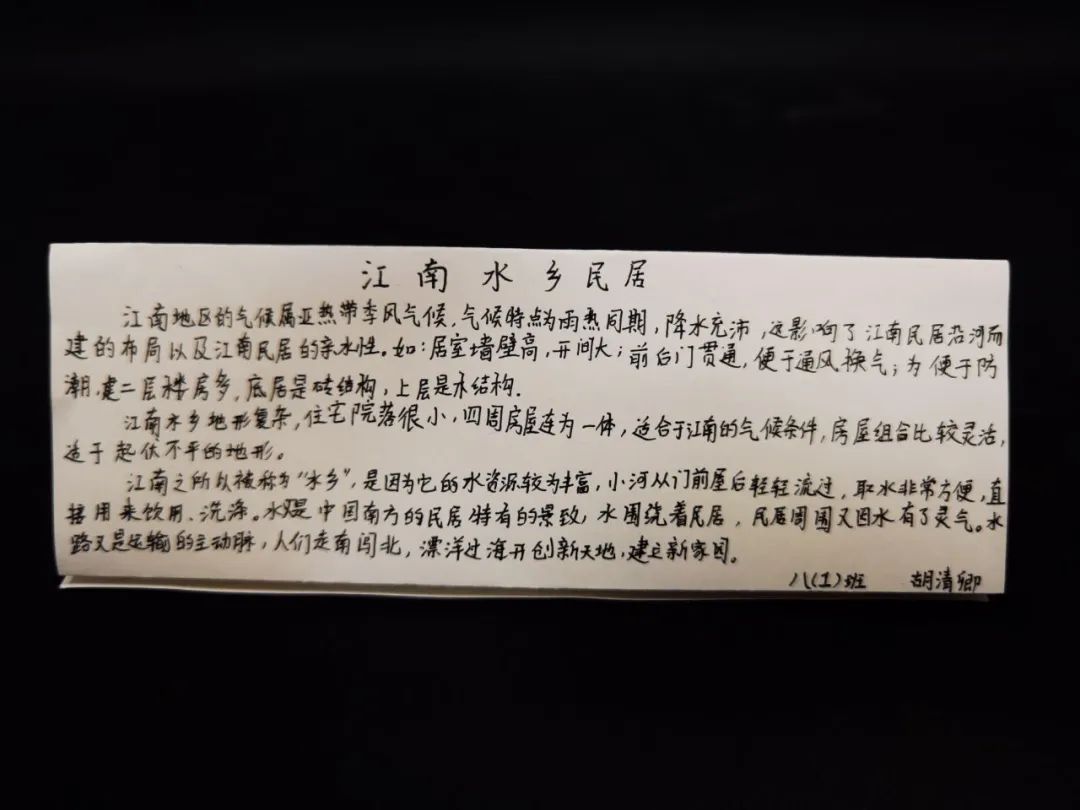 江南水乡民居
江南地区的气候属亚热带季风气候，气候特点为雨热同期，降水充沛，这影响了江南民居沿河而
建的布局以及江南民居的亲水性。如：居室墙壁高，开间大；前后门贯通，便于通风换气；为便于防
潮，建二层楼房多，底居是砖结构，上层是木结构.
江南水乡地形复杂，住宅院落很小，四周房屋连为一体，适合于江南的气候条件，房屋组合比较灵活，
适于起伏不平的地形。
江南之所以被称为“水乡”，是因为它的水资源较为丰富，小河从门前屋后轻轻流过，取水非常方便，直
接用来饮用、洗涤。水又是中国南方的民居特有的景致，水围绕着民居，民居周围又因水有了灵气。水
路又是运输的主动脉，人们走南闯北，漂洋过海开创新天地，建立新家园。
八(1)班 胡清卿